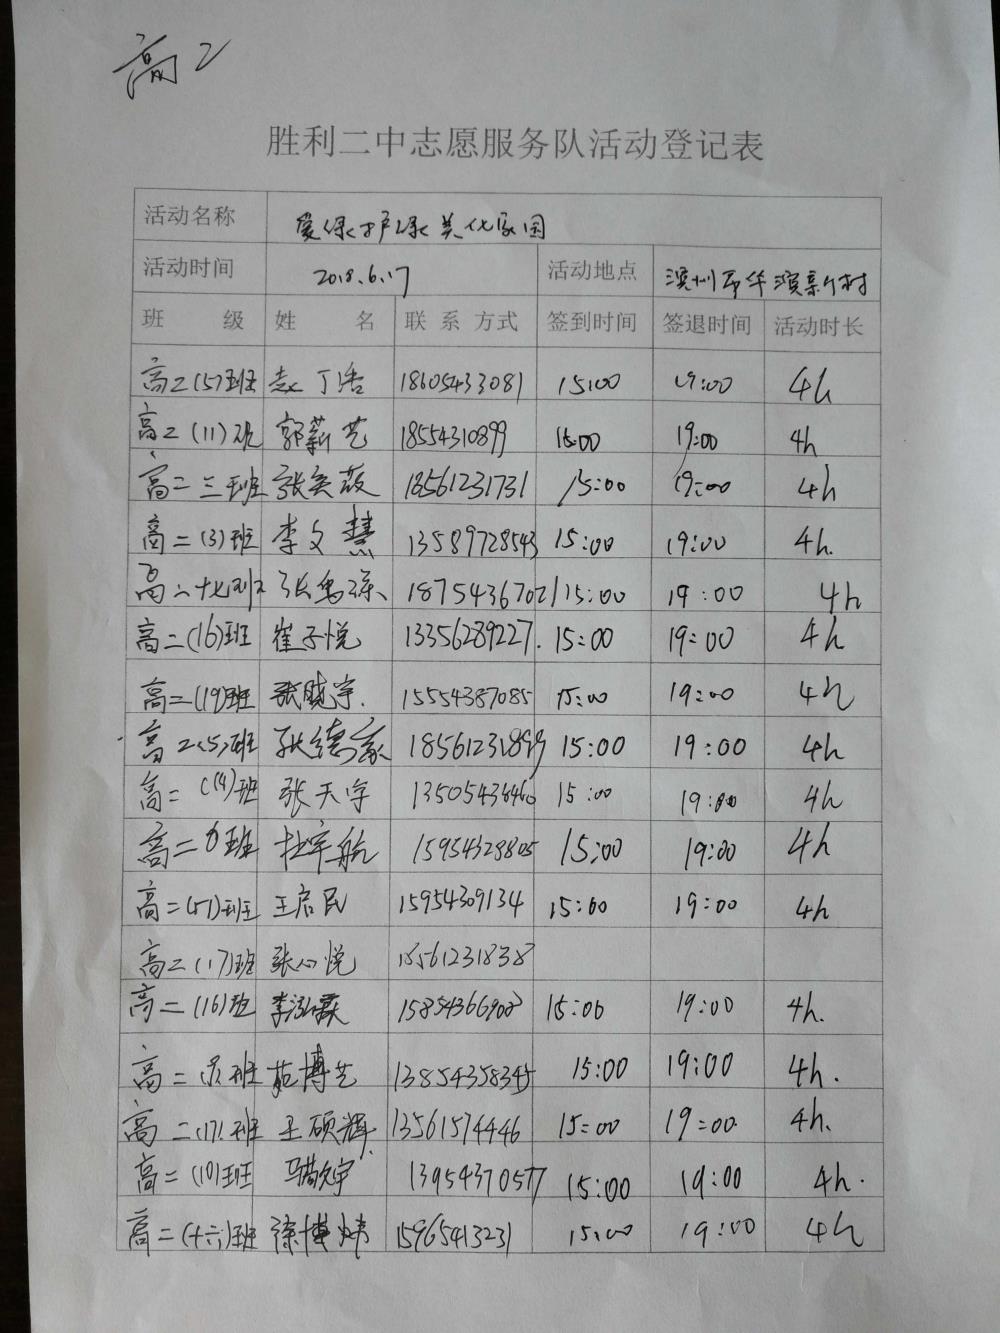 高2
胜利二中志愿服务队活动登记表
活动名称 爱绿护绿 美化家园
活动时间 2018.6.17 活动地点 滨州市华滨新村
班 级 姓 名 联系方式 签到时间 签退时间 活动时长
高2(5)班 赵丁浩 18605433081 15:00 19:00 4h
高2(11)班 郭薪艺 18554310899 15:00 19:00 4h
高二三班 张奕薇 18561231731 15:00 19:00 4h
高二(3)班 李文慧 13589728543 15:00 19:00 4h
高二十七班 张 18754367021 15:00 19:00 4h
高二(16)班 崔子悦 13356289227. 15:00 19:00 4h
高二(19)班 张晓宇. 15554387085 15:00 19:00 4h
高2(5)班 张德家 18561231899 15:00 19:00 4h
高二(14)班 张天宇 13505436460 15:00 19:00 4h
高二 班 杜宇航 15954328805 15:00 19:00 4h
高二(5)班 王启民 15954309134 15:00 19:00 4h
高二(17)班 张心悦 18561231838
高二(16)班 李泓霖 15854366908 15:00 19:00 4h.
高二 班 苑博艺 13854358345 15:00 19:00 4h.
高二(17)班 王硕辉 13561574446 15:00 19:00 4h.
高二(10)班 13954370577 15:00 19:00 4h.
高二(十六)班 徐博炜 15965413231 15:00 19:00 4h